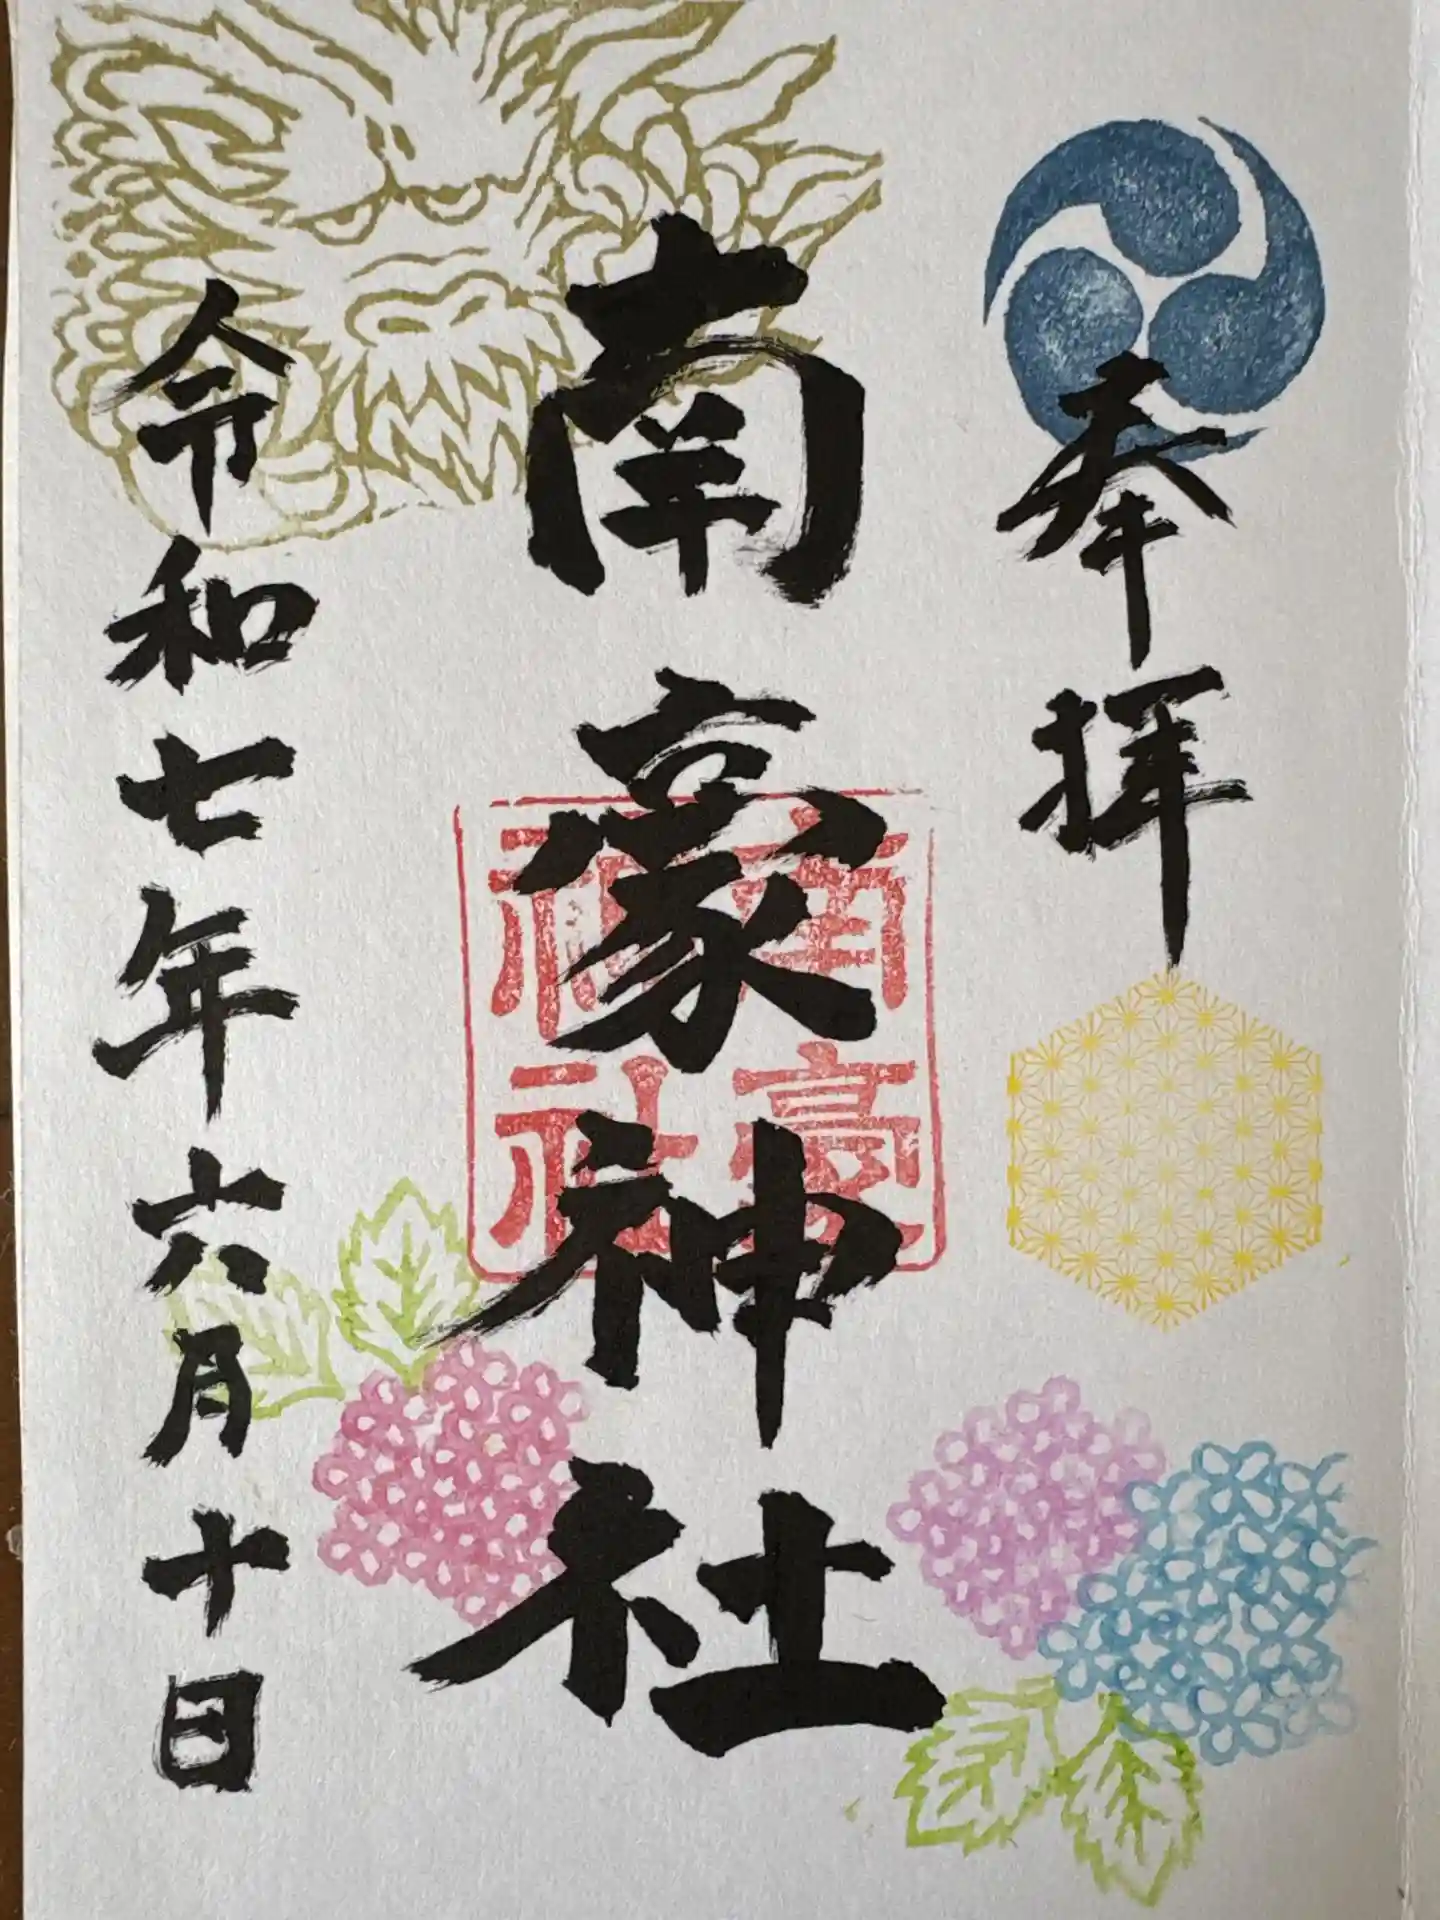 奉拝
南豪神社
南豪
神社
令和七年六月十日